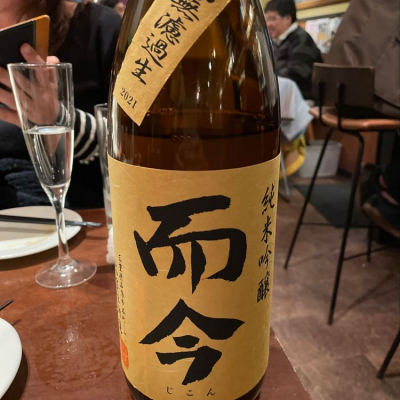 無濾過生
2021
純米吟醸
而今
じこん